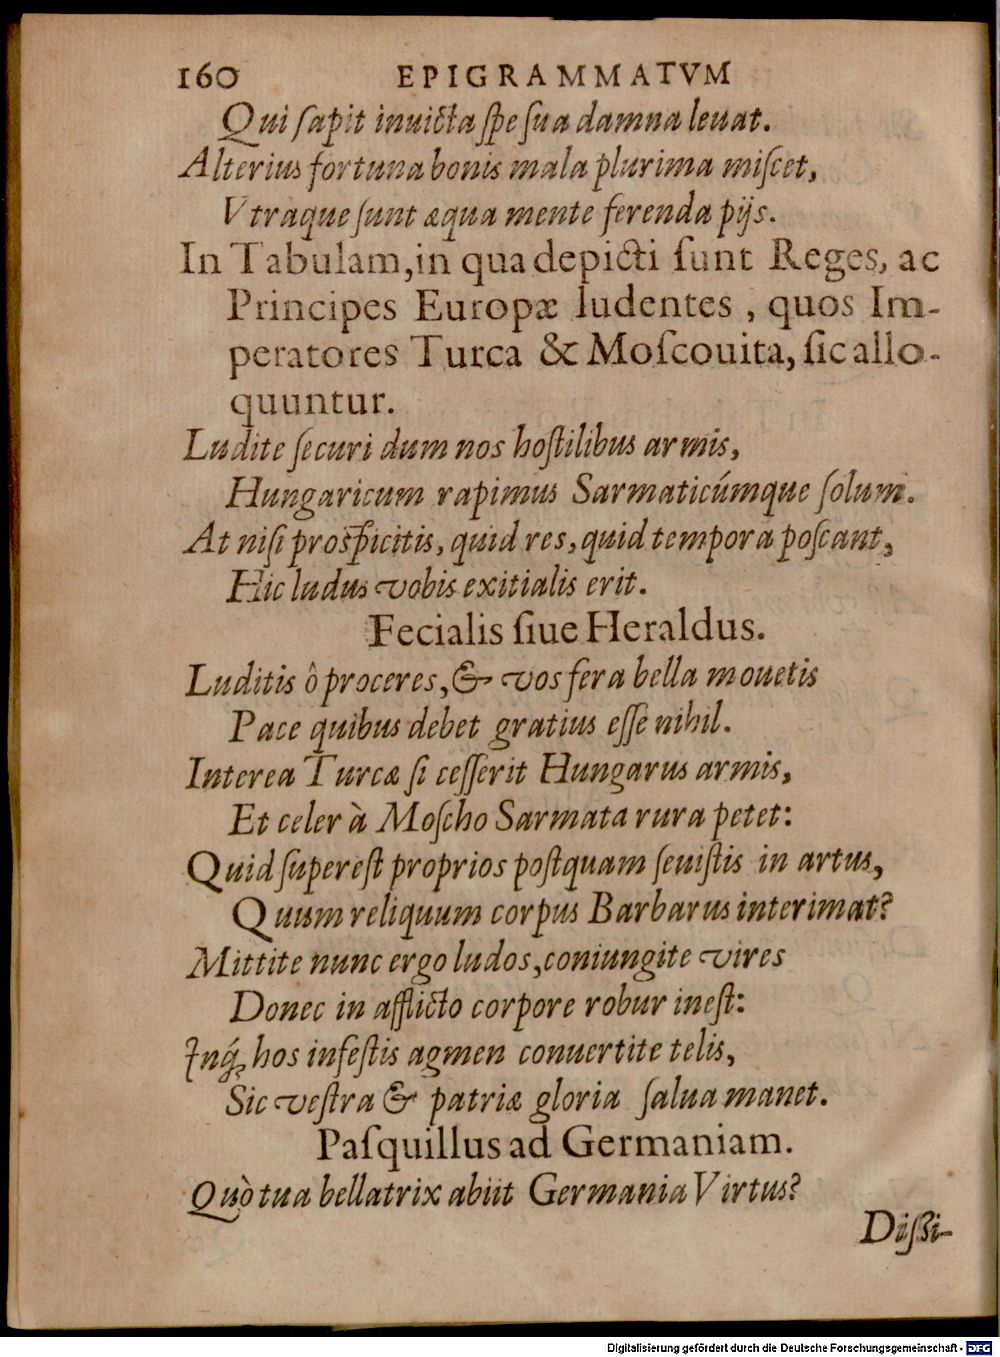 160 EPIGRAMMATVM
Qui ſapit inuicta ſpe ſua damna leuat.
Alterius fortuna bonis mala plurima miſcet,
Vtraque ſunt æqua mente ferenda pijs.
In Tabulam, in qua depicti ſunt Reges, ac
Principes Europæ ludentes, quos Im-
peratores Turca & Moſcouita, ſic allo-
quuntur.
Ludite ſecuri dum nos hoſtilibus armis,
Hungaricum rapimus Sarmaticúmque ſolum.
At niſi proſpicitis, quid res, quid tempora poſcant,
Hic ludus vobis exitialis erit.
Fecialis ſiue Heraldus.
Luditis ô proceres, & vos fera bella mouetis
Pace quibus debet gratius eſſe nihil.
Interea Turcæ ſi ceſſerit Hungarus armis,
Et celer à Moſcho Sarmata rura petet:
Quid ſupereſt proprios poſtquam ſeuiſtis in artus,
Quum reliquum corpus Barbarus interimat?
Mittite nunc ergo ludos, coniungite vires
Donec in afflicto corpore robur ineſt:
Inq́; hos infeſtis agmen conuertite telis,
Sic veſtra & patriæ gloria ſalua manet.
Paſquillus ad Germaniam.
Quò tua bellatrix abiit Germania Virtus?
Dißi-
Digitalisierung gefördert durch die Deutsche Forschungsgemeinschaft - DFG